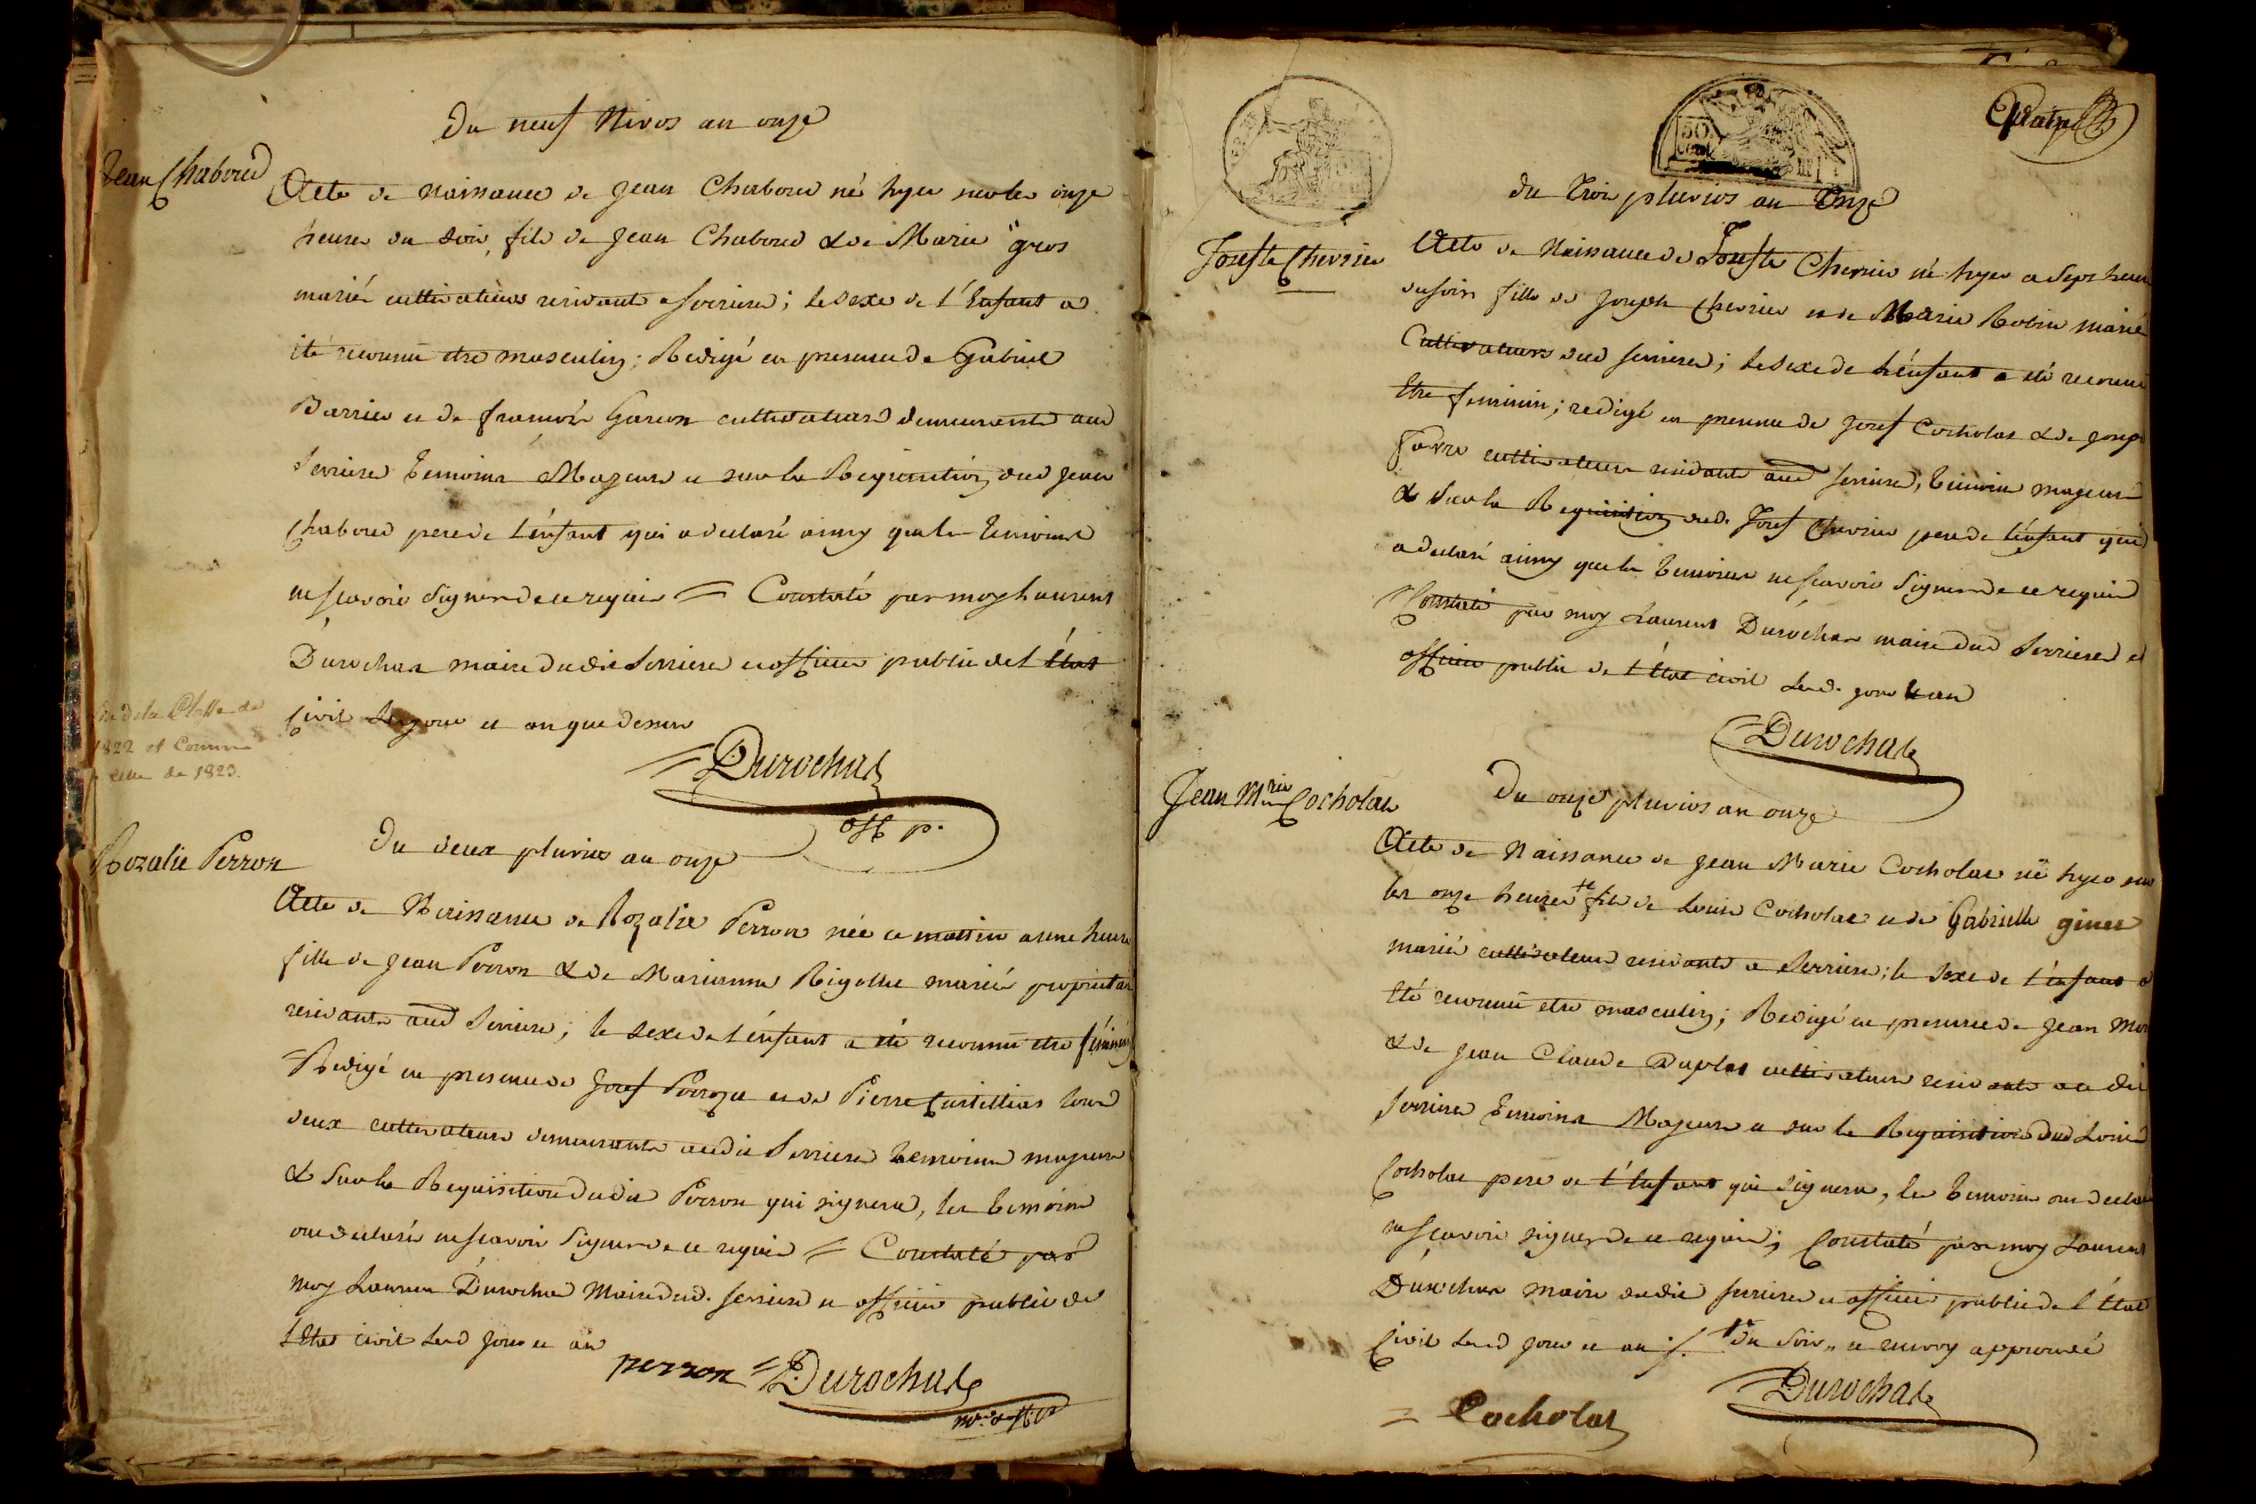 Du neuf Nivos an onze
Jean Chaboud
Acte de Naissance de Jean Chaboud né hyer sur les onze
heures du soir, fils de Jean Chaboud & de Marie gros
mariés cultivateurs residants a Serrieres; le sexe de l'Enfant a
été reconnu etre masculin; Redigé en presence de Gabriel
Barrier et de francois Garcon cultivateurs demeurants aud
Serrieres temoins Majeurs et sur la Requisition dud Jean
Chaboud pere de l'enfant qui a declaré ainsy que les temoins
ne scavoir signer de ce requis = Constaté par moy Laurent
Durochat maire dudit Serrieres et officier public de l'état
Civil les jour et an que dessus
de la Classe de
1822 et Comme
celle de 1823.
Durochat
off p.
Du deux pluvios an onze
Rozalie Perron
Acte de Naissance de Rozalie Perron née ce mattin a une heure
fille de Jean Perron & de Marianne Rigollet mariés proprietai
residants aud Serrieres; le sexe de l'énfant a été reconnu etre féminin
Redigé en presence de Josef et de Pierre tous
deux cultivateurs demeurants audit Serrieres temoins majeurs
& sur la Requisition dudit Perron qui signera, les temoins
ont declarés ne scavoir signer de ce requis = Constaté par
moy Laurent Durochat Maire dud. Serrieres et officier public de
l'état civil led jour et an
perron = Durochat
Du trois pluvios an Onze
50 cent
Josefte Chevrier
Acte de Naissance de Josefte Chevrier né hyer a sept heures
du soir fille de Joseph Chevrier et de Marie Robin mariés
Cultivateurs aud Serrieres; le sexe de l'énfant a été reconnu
etre feminin; redigé en presence de Josef Cocholat & de Josep
favre cultivateurs residants aud Serrieres, temoins majeurs
& sur la Requisition dud. Josef Chevrier pere de l'énfant qui
a declaré ainsy que les temoins ne scavoir signer de ce requis
Constaté par moy Laurent Durochat maire dud Serrieres et
officier public de l'état civil led. jour et an
Durochat
Jean Mrie Cocholat
Du onze pluvios an onze
Acte de Naissance de Jean Marie Cocholat né hyer sur
les onze heures fils de Louis Cocholat et de Gabrielle ginet
mariés cultivateurs residants a Serrieres; le sexe de l'énfant a
été reconnu etre masculin; Redigé en presence de Jean
& de Jean Claude Duplat cultivateurs residants audit
Serrieres temoins Majeurs et sur la Requisition dud Louis
Cocholat pere de l'Enfant qui signera, les temoins ont declaré
ne scavoir signer de ce requis; Constaté par moy Laurent
Durochat maire dudit Serrieres et officier public de l'état
Civil led jour et an /. du soir,, et renvoy approuvé
Durochat
= Cocholat